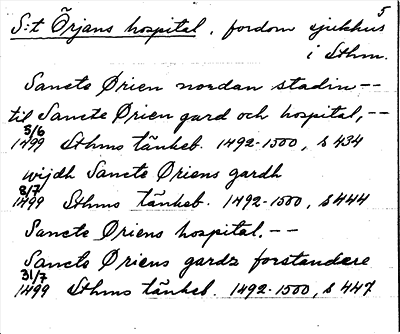 5
S:t Örjans hospital, fordom sjukhus
i Sthm.
Sancte Ørien nordan stadin --
til Sancte Ørien gard och hospital, --
3/6
1499 Sthms tänkeb. 1492-1500, s 434
wijdh Sancte Øriens gardh
8/7
1499 Sthms tänkeb. 1492-1500, s 444
Sancte Øriens hospital. --
Sancte Øriens gardz forstandere
31/7
1499 Sthms tänkeb. 1492-1500, s 447